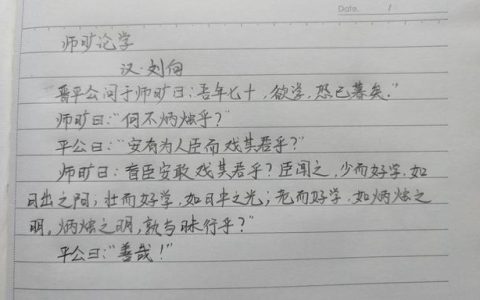 Date. /
师旷论学
汉·刘向
晋平公问于师旷曰:"吾年七十,欲学,恐已暮矣."
师旷曰:"何不炳烛乎?"
平公曰:"安有为人臣而戏其君乎?"
师旷曰:盲臣安敢戏其君乎?臣闻之,少而好学,如
日出之阳;壮而好学,如日中之光;老而好学,如炳烛之
明,炳烛之明,孰与昧行乎?"
平公曰:"善哉!"